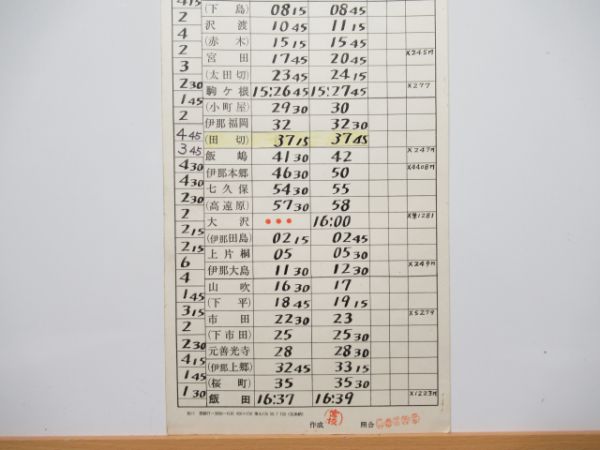 4 15
(下 島) 08 15 08 45
2
沢 渡 10 45 11 15
4
(赤 木) 15 15 15 45
2
宮 田 17 45 20 45 X245M
3
(太田切) 23 45 24 15
2 30
駒ケ根 15:26 45 15:27 45 X277
1 45
(小町屋) 29 30 30
2
伊那福岡 32 32 30
4 45
(田 切) 37 15 37 45
3 45
飯 嶋 41 30 42 X247M
4 30
伊那本郷 46 30 50 X4408M
4 30
七久保 54 30 55
2 30
(高遠原) 57 30 58
2
大 沢 ••• 16:00 1281
2 15
(伊那田島) 02 15 02 45
2 15
上片桐 05 05 30
6
伊那大島 11 30 12 30 X249M
4
山 吹 16 30 17
1 45
(下 平) 18 45 19 15
3 15
市 田 22 30 23 X527M
2
(下市田) 25 25 30
2 30
元善光寺 28 28 30
4 15
(伊那上郷) 32 45 33 15
1 45
(桜 町) 35 35 30
1 30
飯 田 16:37 16:39 X1223M
作成 照合